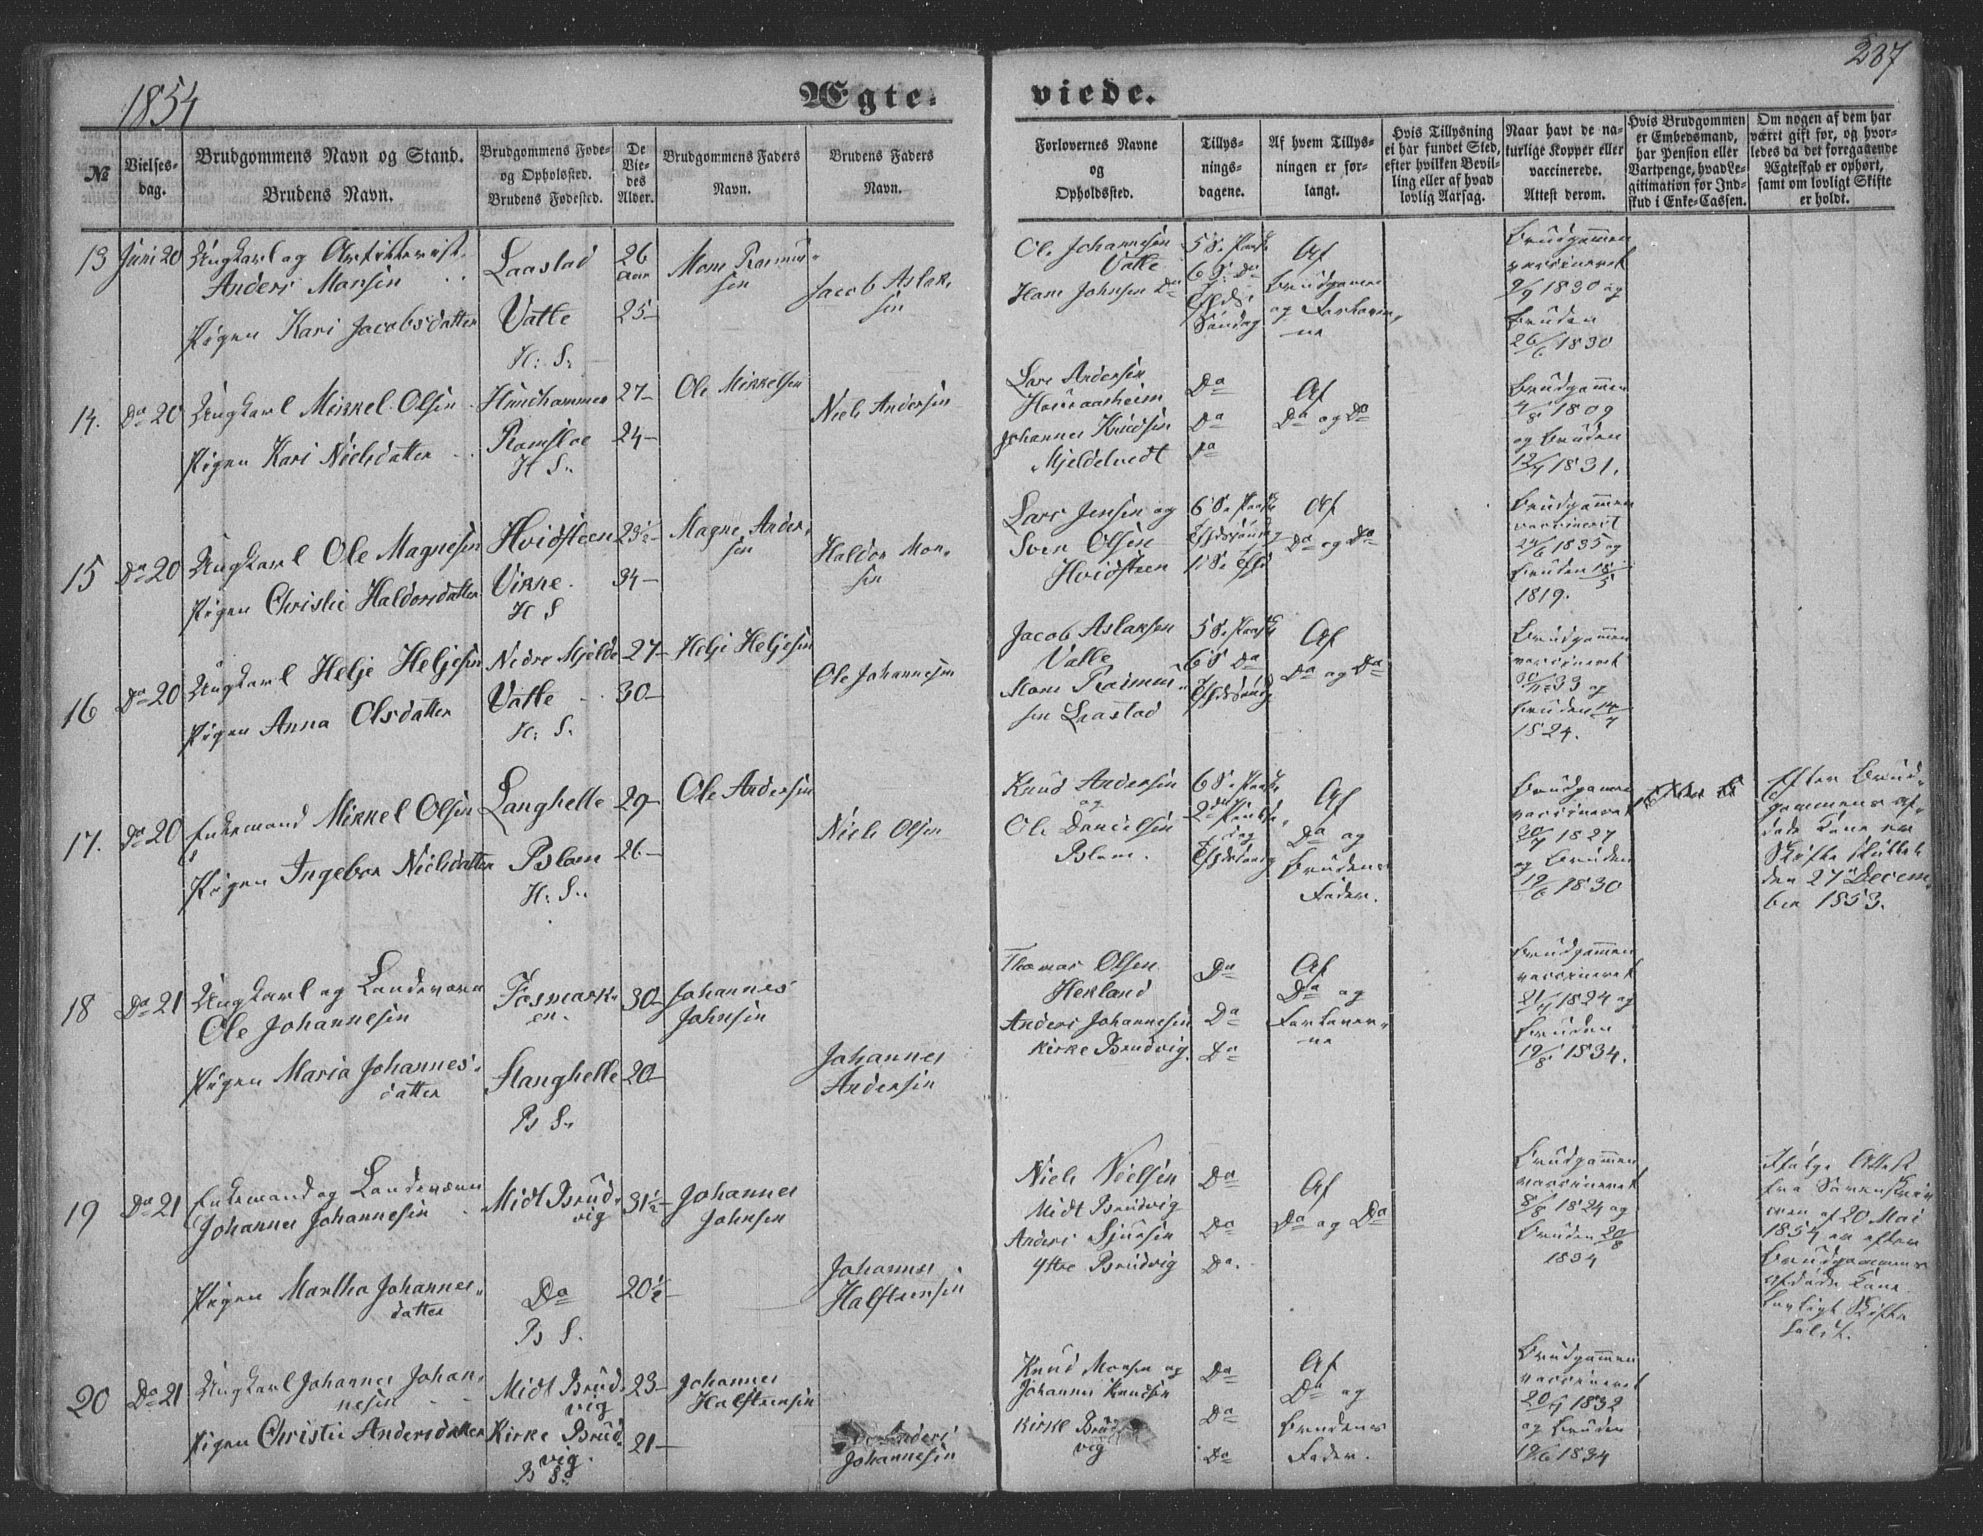 1854
Ægte-
viede.
237
№
Vielses-
dag.
Brudgommens Navn og Stand.
Brudens Navn.
Brudgommens Føde-
og Opholdssted.
Brudens Fødested.
De
Vie-
des
Alder.
Brudgommens Faders
Navn.
Brudens Faders
Navn.
Forlovernes Navne
og
Opholdssted.
Tillys-
nings-
dagene.
Af hvem Tillys-
ningen er for-
langt.
Hvis Tillysning
ei har fundet Sted,
efter hvilken Bevil-
ling eller af hvad
lovlig Aarsag.
Naar havt de na-
turlige Kopper eller
vaccinerede.
Attest derom.
Hvis Brudgommen
er Embedsmand,
har Pension eller
Vartpenge, hvad Le-
gitimation for Ind-
skud i Enke-Cassen.
Om nogen af dem har
været gift før, og hvor-
ledes da det foregaaende
Ægteskab er ophørt,
samt om lovligt Skifte
er holdt.
13 Juni 20 Ungkarl og Artillerist
Anders Monsen
Laastad 26 Aar
Mons Rasmus-
sen
Pigen Kari Jacobsdatter
Vatle 25
H: S.
Jacob Aslak-
sen
Ole Johannesen
Vatle
Hans Johnsen Do
5 S. Paaske
6 S. Do
Søndag
Af
Brudgommen
og Forlover-
ne
Brudgommen
vaccineret
9/9 1830 og
Bruden
26/6 1830
14. Do 20 Ungkarl Mikkel Olsen
Hundhammer 27
Ole Mikkelsen
Pigen Kari Nielsdatter
Ramsloe 24
H S.
Niels Andersen
Lars Andersen
Johannes Knudsen
Mjeldetvedt
Do
Do
Do
Af
Do og Do
Brudgommen
og Bruden
1831.
15 Do 20 Ungkarl Ole Magnesen
Hvidsteen 23½
Magne Ander-
sen
Pigen Christie Haldorsdatter
Vikne 34
H S
Haldor Mon-
sen
Lars Jensen og
Sven Olsen
Hvidsteen
6 S. Paaske
Af
Do og Do
Brudgommen
vaccineret
24/6 1835 og
Bruden 18/5
1819.
16 Do 20 Ungkarl Helje Heljesen
Nedre Mjelde 27
Helje Heljesen
Pigen Anna Olsdatter
Vatle 30
H: S.
Ole Johannesen
Jacob Aslaksen
Vatle
Mons Rasmus-
sen Laastad
5 S. Paaske
6 S Do
Af
Do og Do
Brudgommen
vaccineret
33 og
Bruden 14/7
1824.
17. Do 20 Enkemand Mikkel Olsen
Langhelle 29
Ole Andersen
Pigen Ingebor Nielsdatter
Blom 26
H: S.
Niels Olsen
Knud Andersen
og
Ole Danielsen
Blom.
6 S. Paaske
2den Pintse-
dag
Af
Do og
Brudens
Fader.
Brudgommen
vaccineret
1827
og Bruden
19/6 1830
Efter Brud-
gommens af-
døde Kone er
Skifte sluttet
den 27 Decem-
ber 1853.
18 Do 21 Ungkarl og Landeværn
Ole Johannesen
Fosmark-
en. 30
Johannes
Johnsen
Pigen Maria Johannes-
datter
Stanghelle 20
B S.
Johannes
Andersen
Thomas Olsen
Herland
Anders Johannesen
Kirke Brudvig.
Do
Do
Do
Af
Do og
Forlover-
ne
Brudgommen
vaccineret
1824 og
Bruden
19/8 1834.
19 Do 21 Enkemand og Landeværn
Johannes Johannesen
Midt Brud-
vig 31½
Johannes
Johnsen
Pigen Martha Johannes-
datter
Do 20½
B S.
Johannes
Halstensen
Niels Nielsen
Midt Brudvig
Anders Sjursen
Yttre Brudvig
Do
Do
Do.
Af
Do og Do
Brudgommen
vaccineret
8/8 1824 og
Bruden 20/8
1834
Ifølge Attest
fra Sorenskriv-
eren af 20 Mai
1854 er efter
Brudgommens
afdøde Kone
lovligt Skifte
holdt.
20 Do 21 Ungkarl Johannes Johan-
nesen
Midt Brud-
vig 23
Johannes
Halstensen
Pigen Christie Andersdatter
Kirke Brud-
vig. 21
B S.
Anders
Johannesen
Knud Monsen og
Johannes Knudsen
Kirke Brud-
vig
Do
Do
Do
Af
Do og
Brudens
Fader.
Brudgommen
vaccineret
1832
og Bruden
19/6 1834